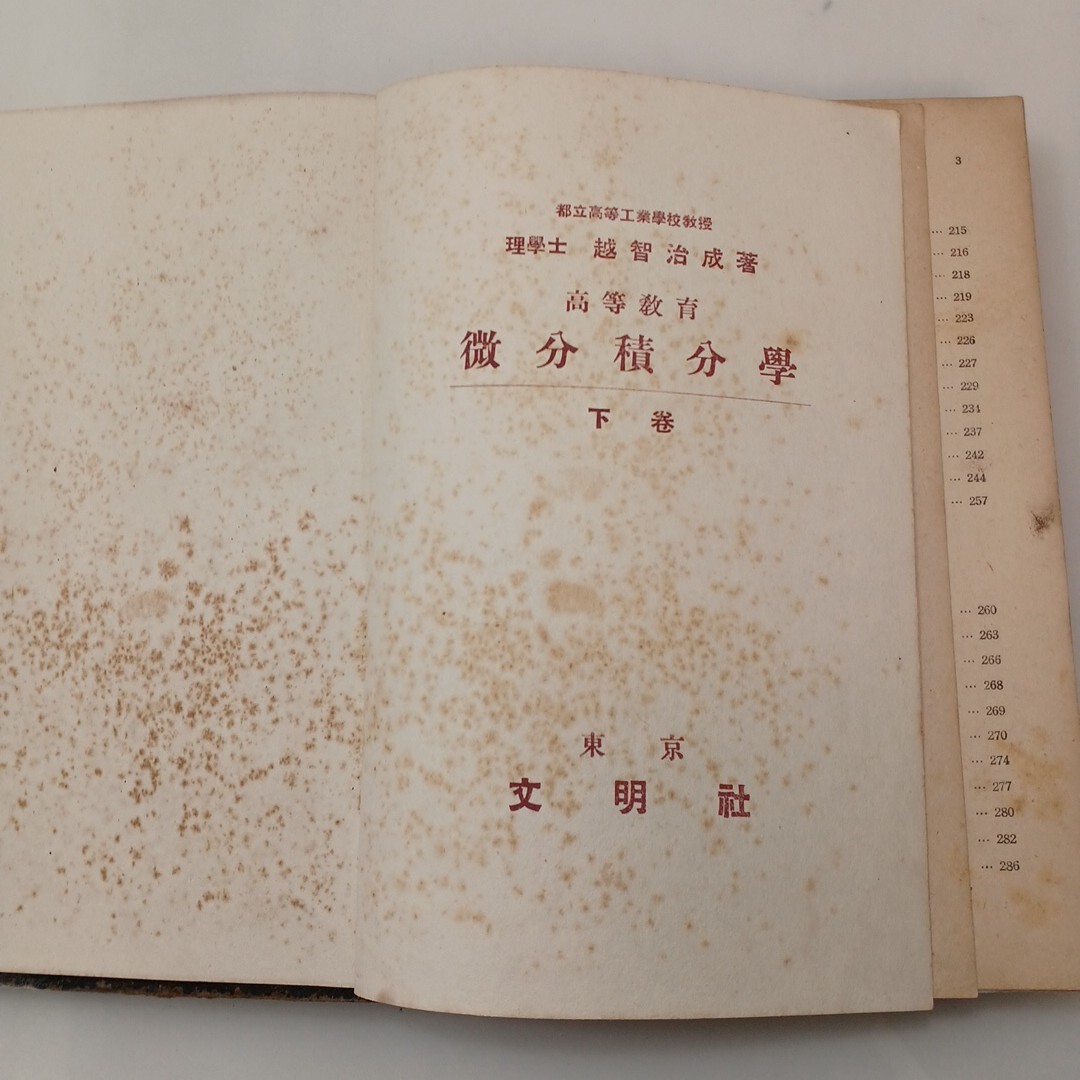 都立高等工業學校敎授
理學士 越智治成著
高等敎育
微分積分學
下卷
東京
文明社
3
… 215
… 216
… 218
… 219
… 223
… 226
… 227
… 229
… 234
… 237
… 242
… 244
… 257
… 260
… 263
… 266
… 268
… 269
… 270
… 274
… 277
… 280
… 282
… 286